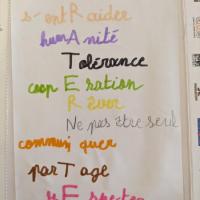 s'entRaider
humAnité
Tolérance
coopEration
RÊver
Ne pas être seul
communiquer
parTage
rEspecter